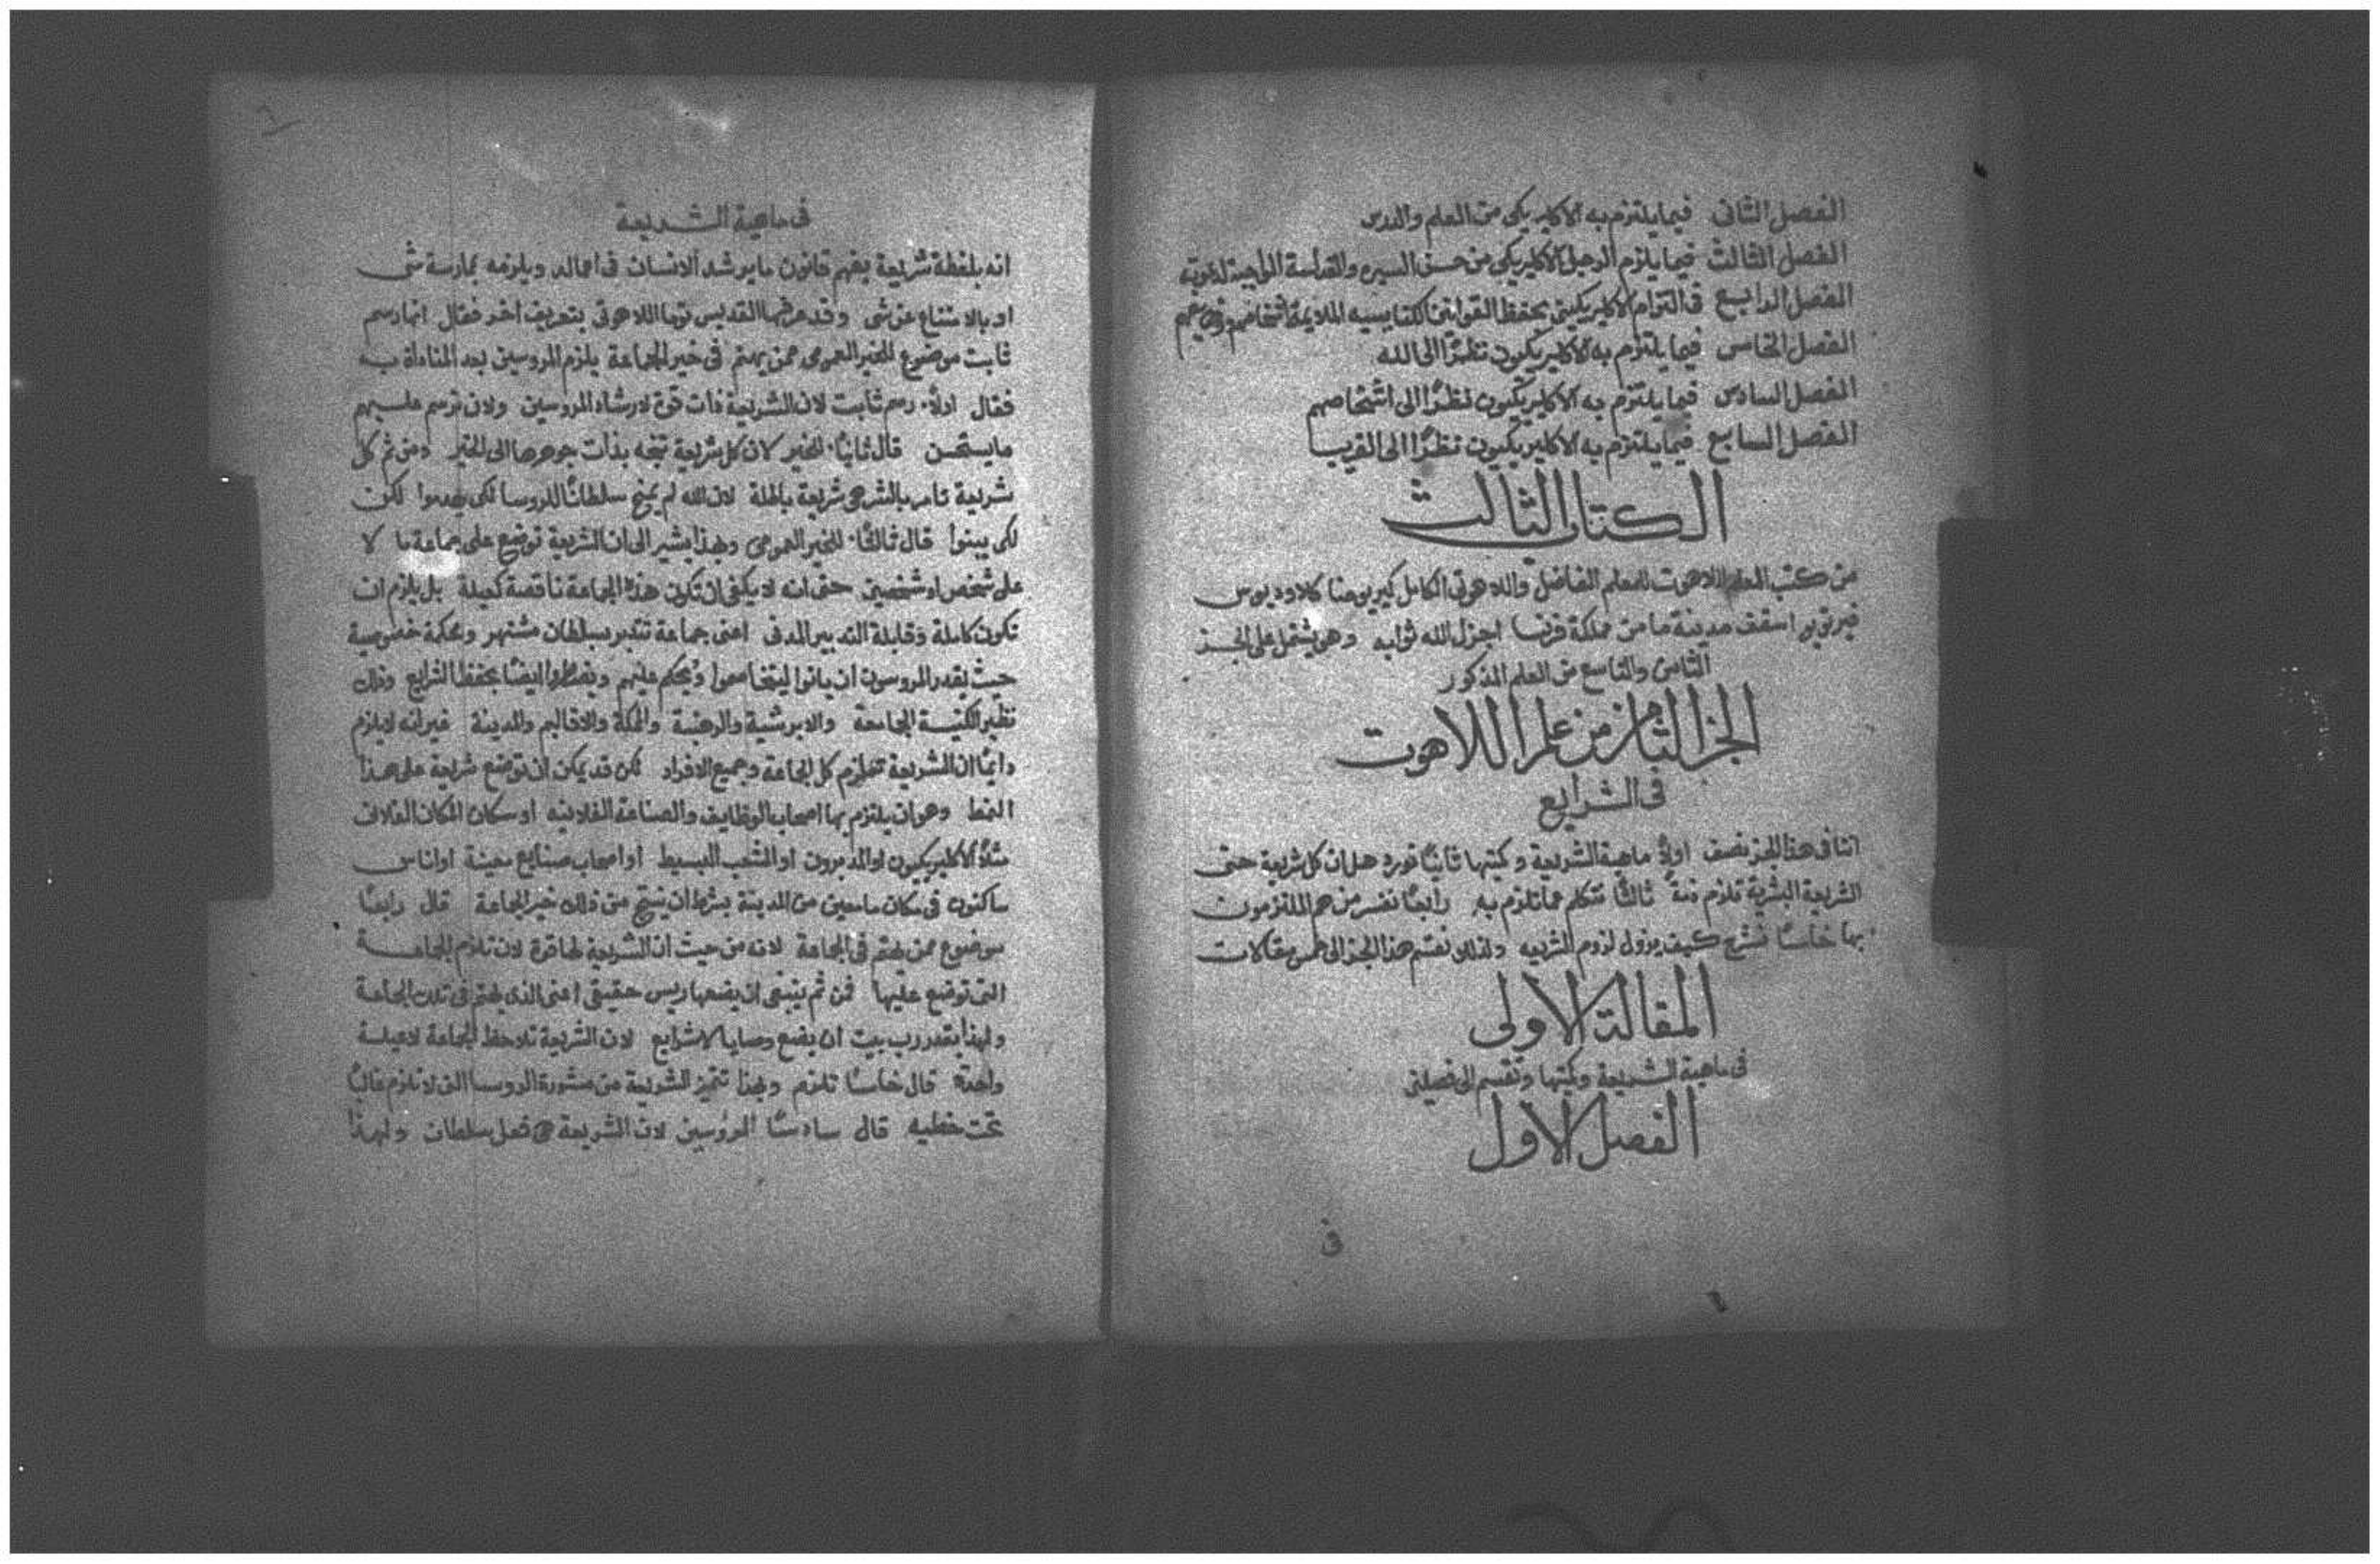 الفصل الثانى فيما يلتزم به الاكليريكى من العلم والدرس
الفصل الثالث فيما يلزم الرجل الاكليريكى من حسن السيره والقداسة الواجبة لدعوته
الفصل الرابع فى التزام الاكليريكيين بحفظ القوانين الكنايسيه الملايمة اشخاصهم
الفصل الخامس فيما يلتزم به الاكليريكيون نظرًا الى الله
الفصل السادس فيما يلتزم به الاكليريكيون نظرًا الى اشخاصهم
الفصل السابع فيما يلتزم به الاكليريكيون نظرًا الى القريب
الكتاب الثالث
من كتب العلم اللاهوت للمعلم الفاضل واللاهوتى الكامل كيريوحنا كلاوديوس
فيرتويو اسقف مدينة ما من مملكة فرنسا اجزل الله ثوابه وهو يشتمل على الجز
الثامن والتاسع من العلم المذكور
الجز الثامن من علم اللاهوت
فى الشرايع
اننا فى هذا الجز نصف اولًا ماهية الشريعة وكميتها ثانيًا نورد هل ان كل شريعة حتى
الشريعة البشرية تلزم ذمةً ثالثًا نتكلم عما تلزم به رابعًا نفسر من هم الملتزمون
بها خامسًا نشرح كيف يزول لزوم الشريعه ولذلك نقسم هذا الجز الى خمس مقالات
المقالة الاولى
فى ماهية الشريعة وكميتها وتقسم الى فصلين
الفصل الاول
فى
فى ماهية الشريعة
انه بلفظة شريعة يفهم قانون ما يرشد الانسان فى اعماله ويلزمه بمارسة شى
او بالامتناع عن شى وقد عرفها القديس توما اللاهوتى بتعريف اخر فقال انها رسم
ثابت موضوع للخير العمومى ممن يهتم فى خير الجماعة يلزم المروسين بعد المناداة به
فقال اولًا رسم ثابت لان الشريعة ذات قوة لارشاد المروسين ولان ترسم عليهم
ما يستحسن قال ثانيًا للخير لان كل شريعة تتجه بذات جوهرها الى الخير ومن ثم كل
شريعة تامر بالشر هى شريعة باطلة لان الله لم يمنح سلطانًا للروسا لكى يهدموا لكن
لكى يبنوا قال ثالثًا للخير العمومى وبهذا يشير الى ان الشريعة توضع على جماعة ما لا
على شخص او شخصين حتى انه لا يكفى ان تكون هذه الجماعة ناقصة كعيلة بل يلزم ان
تكون كاملة وقابلة التدبير المدنى اعنى جماعة تتدبر بسلطان مشتهر ومحكمة خصوصية
حيث يقدر المروسون ان ياتوا ليتخاصموا ويحكم عليهم ويضطروا ايضًا بحفظ الشرايع وذلك
نظير الكنيسة الجامعة والابرشية والرهبنة والمملكة والاقاليم والمدينة غير انه لا يلزم
دايمًا ان الشريعة تلزم كل الجماعة وجميع الافراد لكن قد يمكن ان توضع شريعة على هذا
النمط وهو ان يلتزم بها اصحاب الوظايف والصناعة الفلانيه او سكان المكان الفلانى
مثلًا الاكليريكيون او المدبرون او الشعب البسيط او اصحاب صنايع معينة او اناس
ساكنون فى مكان ما معين من المدينة بشرط ان ينتج من ذلك خير الجماعة قال رابعًا
موضوع ممن يهتم فى الجماعة لانه من حيث ان الشريعة لها قوة لان تلزم الجماعة
التى توضع عليها فمن ثم ينبغى ان يضعها ريس حقيقى اعنى الذى يهتم فى تلك الجماعة
ولهذا يقدر رب بيت ان يضع وصايا لا شرايع لان الشريعة تلاحظ الجماعة لا عيلة
واحدة قال خامسًا تلزم وبهذا تتميز الشريعة من مشورة الروسا التى لا تلزم غالبًا
تحت خطيه قال سادسًا المروسين لان الشريعة هى فعل سلطان ولهذا